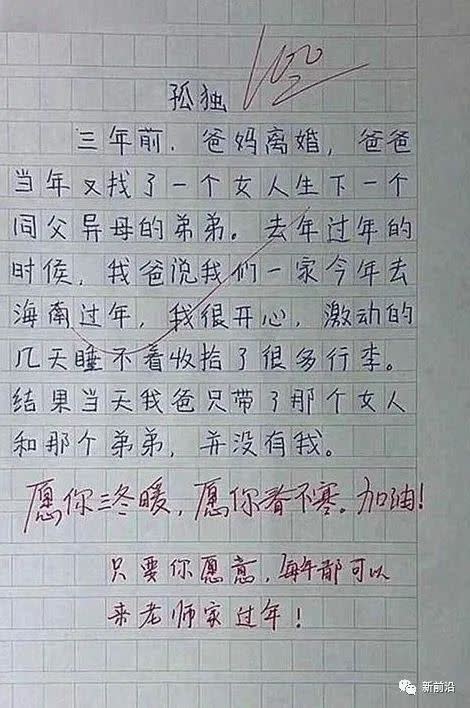 100
孤独
三年前．爸妈离婚，爸爸
当年又找了一个女人生下一个
同父异母的弟弟。去年过年的
时候，我爸说我们一家今年去
海南过年，我很开心，激动的
几天睡不着收拾了很多行李。
结果当天我爸只带了那个女人
和那个弟弟，并没有我。
愿你三冬暖，愿你春不寒。加油！
只要你愿意，每年都可以
来老师家过年！
新前沿